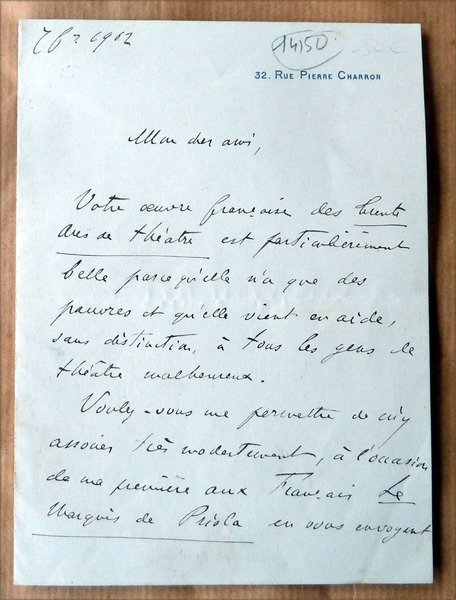 7 fr 1902
14150
32, RUE PIERRE CHARRON
Mon cher ami,
Votre œuvre française des Trente
Ans de théâtre est particulièrement
belle parce qu'elle n'a que des
pauvres et qu'elle vient en aide,
sans distinction, à tous les gens de
théâtre malheureux.
Voulez-vous me permettre de m'y
associer très modestement, à l'occasion
de ma première aux Français Le
Marquis de Priola en vous envoyant